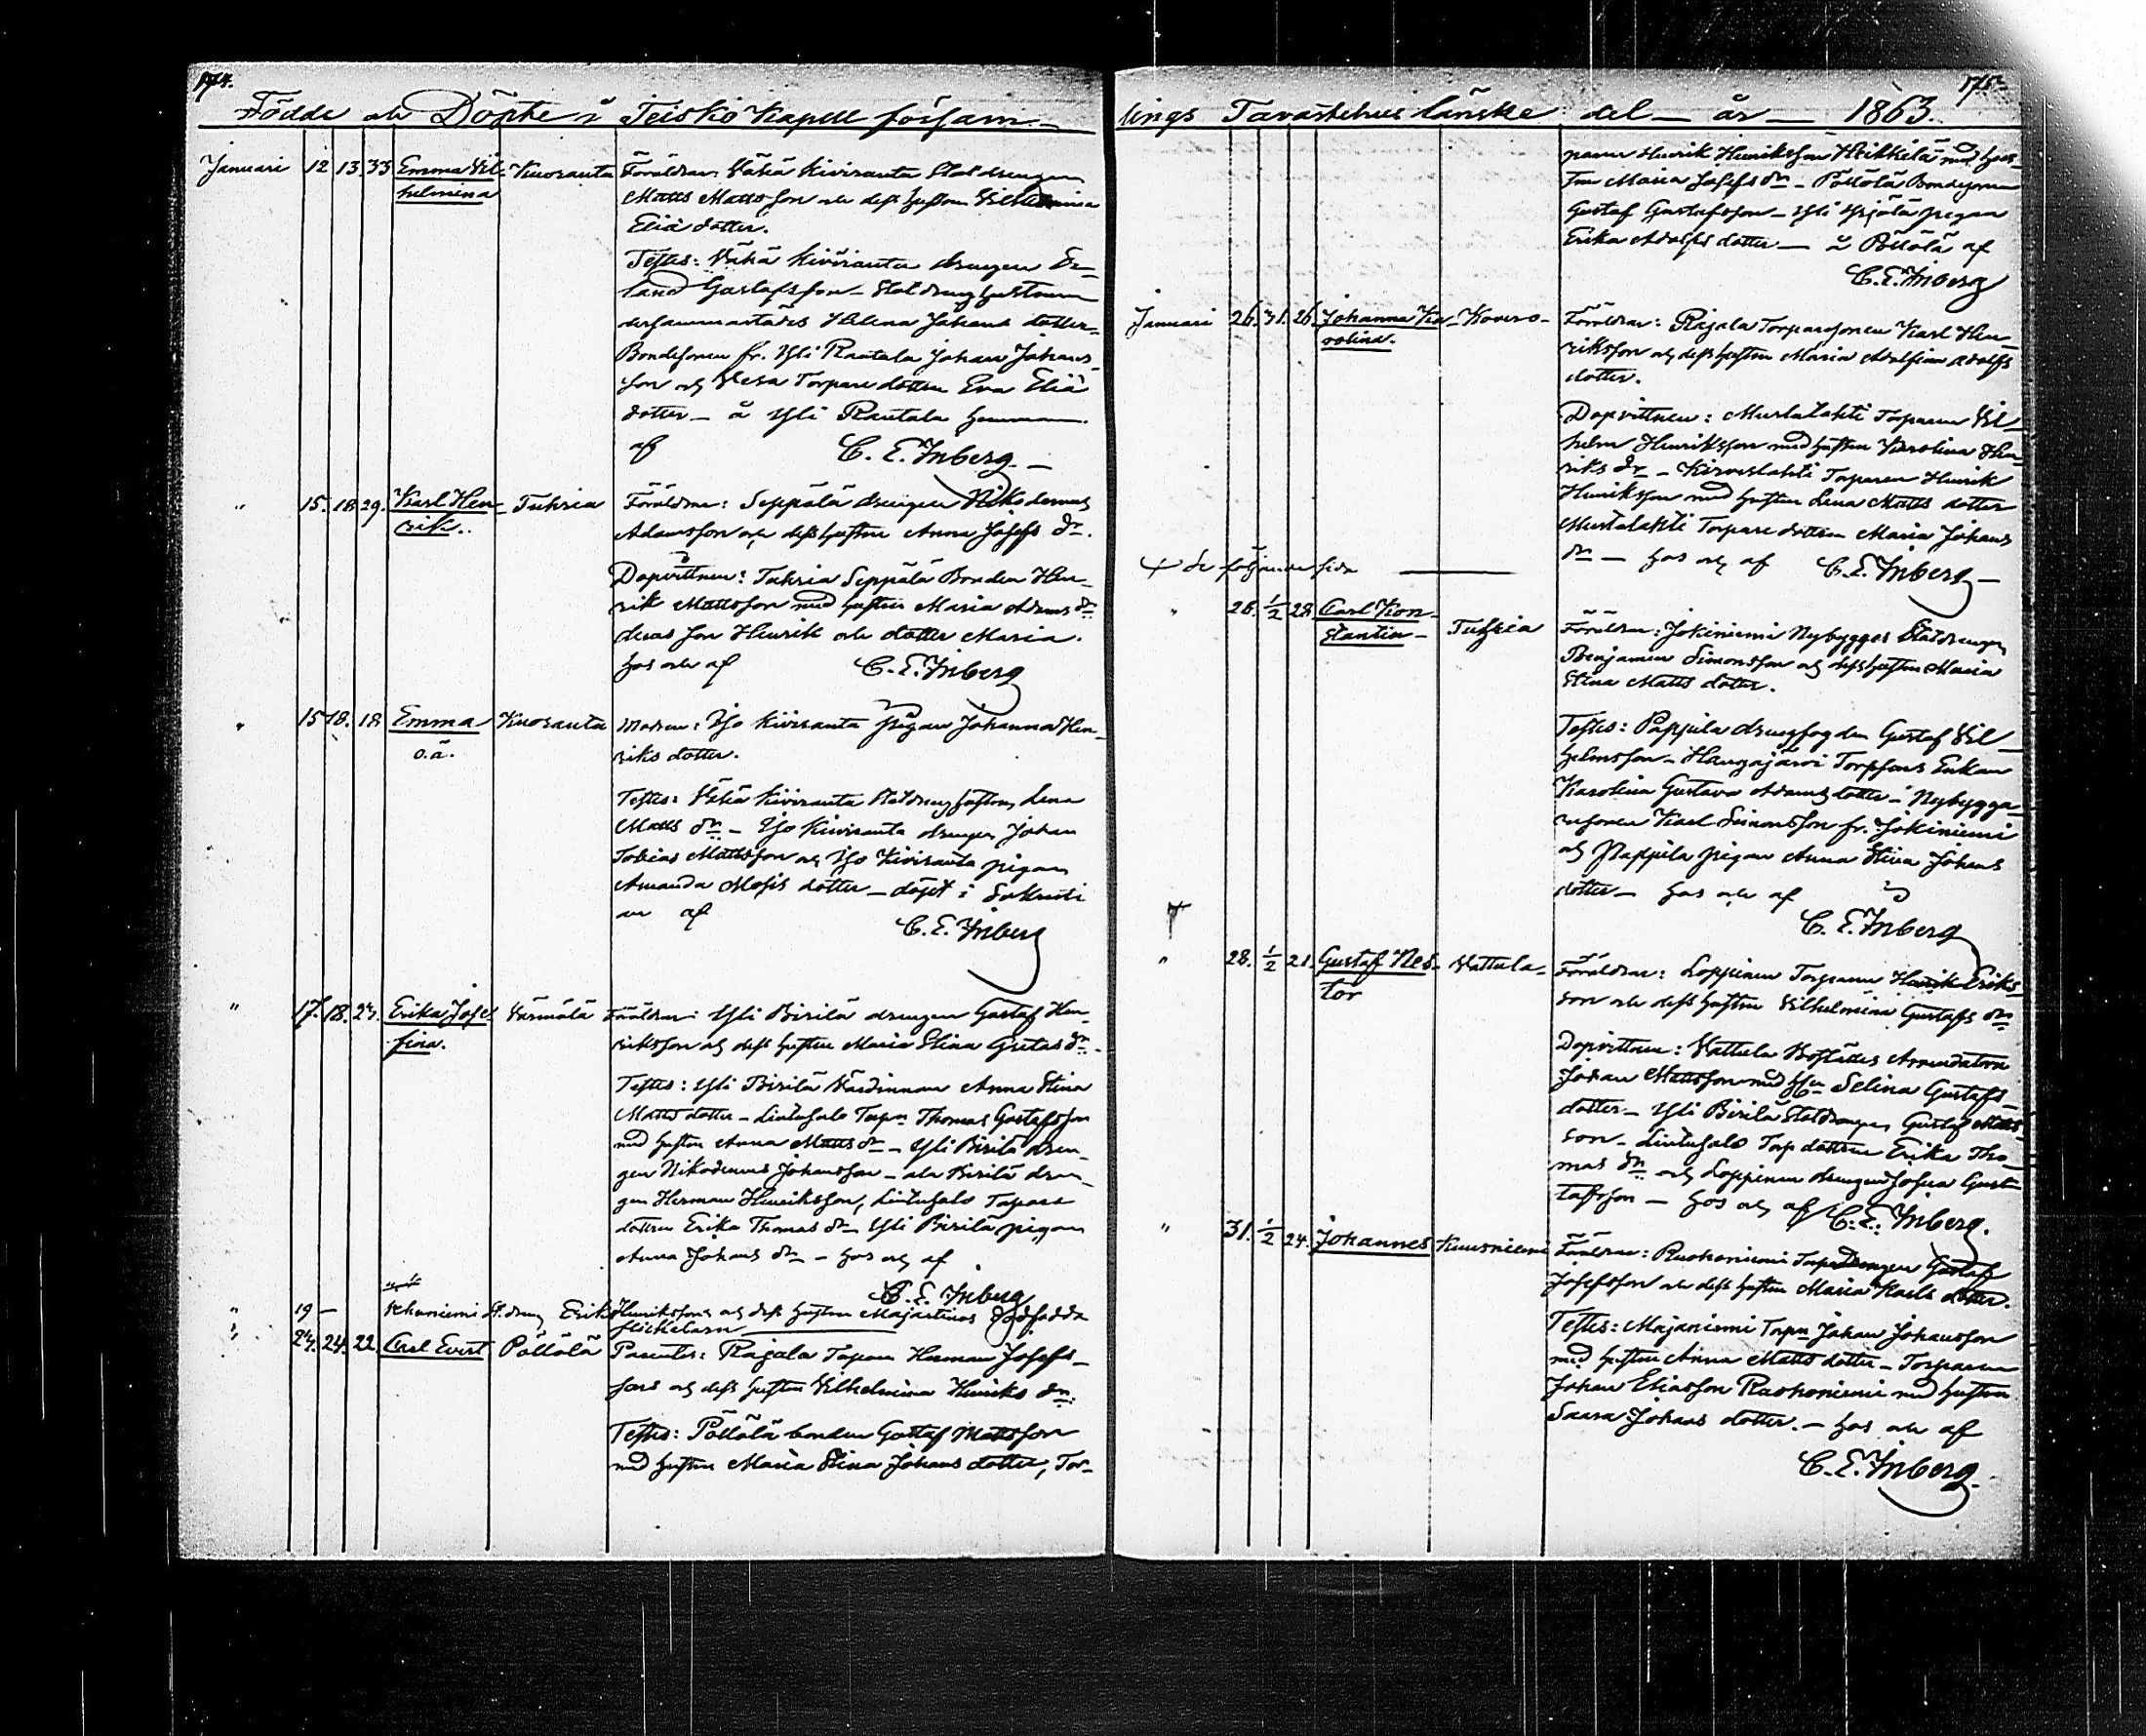 174.
Födde och Döpte i Teisko Kapell församlings
Januari 12 13. 33 Emma Vil- Kuoranta Föräldrar: Vähä Kiviranta Statdrengen
helmina Matts Mattsson och dess hustrun Vilhelmina
Eliä dotter.
Testes: Vähä Kiviranta drengen
Gustafsson - Statdreng hustrun
dersammastädes Helena Johans dotter -
Bondesonen fr. Yli Rautala Johan Johans-
son och Torpare dottren Eva Eliä
dotter - å Yli Rautala hemman
af C. E. Inberg. -
" 15. 18. 29. Karl Hen- Tuhria Föräldrar: Seppälä drengen Nikodemus
rik. Adamsson och dess hustrun Anna Josefs dr.
Dopvittnen: Tuhria Seppälä Bonden Hen-
rik Mattsson med hustrun Maria Adams dr
deras son Henrik och dotter Maria.
hos och af C. E. Inberg
" 15 18. 18 Emma Kuoranta Modren: Iso Kiviranta pigan Johanna Hen-
o.ä. riks dotter.
Testes: Vähä Kiviranta Statdreng hustrun Lena
Matts dr - Iso Kiviranta drengen Johan
Tobias Mattsson och Iso Kiviranta pigan
Amanda Mosis dotter - döpt i Sakristi
an af C. E. Inberg
" 17. 18. 24. Erika Jose- Värmälä Föräldrar: Yli Birilä drengen Gustaf Hen-
fina. riksson och dess hustrun Maria Stina Gustas dr.
Testes: Yli Birilä Värdinnan Anna Stina
Matts dotter - Lintusalo Torpn Thomas Gustafsson
med hustrun Anna Matts dr - Yli Birilä dren-
gen Nikodemus Johansson - ala Birilä dren-
gen Herman Henriksson, Lintusalo Torpare
dottren Erika Thomas dr - Yli Birilä pigan
Anna Johans dr - hos och af
C. E. Inberg
" 19 - St. dreng Erik Henriksson och dess hustrun Majastinas dödfödda
flickebarn
" 24. 24. 22 Carl Evert Pöllölä Parentes: Rajala Torparn Herman Josefs-
son och dess hustrun Vilhelmina Henriks dr.
Testes: Pöllölä bonden Gustaf Mattsson
med hustrun Maria Stina Johans dotter, Tor-
175.
lings Tavastehus länske del - år - 1863.
paren Henrik Henriksson Heikkilä med hus-
trun Maria Josefs dr - Pöllölä Bondesonen
Gustaf Gustafsson - Yli pigan
Erika Adolfs dotter - å Pöllölä af
C. E. Inberg
Januari 26. 31. 26. Johanna Ka- Kovero- Föräldrar: Rajala Torparsonen Karl Hen-
rolina. riksson och dess hustrun Maria Adolfina Adolfs
dotter.
Dopvittnen: Mustalahti Torparen Vil-
helm Henriksson med hustrun Karolina Hen-
riks dr - Kirveslahti Torparen Henrik
Henriksson med hustrun Lena Matts dotter
Mustalahti Torpare dottren Maria Johans
dr - hos och af C. E. Inberg -
+ se följande sida
" 26. 1/2 28. Carl Kon- Tuhria Föräldrar: Jokiniemi Nybygges Statdrengen
stantin - Benjamin Simonsson och dess hustrun Maria
Stina Matts dotter.
Testes: Pappila drengfogden Gustaf Vil-
helmsson - Haugajärvi Torpsons Enkan
Karolina Gustava Adams dotter - Nybygga-
resonen Karl Simonsson fr. Jokiniemi
och Pappila pigan Anna Stina Johans
dotter - hos och af
C. E. Inberg
" 28. 1/2 21. Gustaf Nes- Vattula - Föräldrar: Loppinen Torparen Henrik Eriks-
tor son och dess hustrun Vilhelmina Gustafs dr
Dopvittnen: Vattula Boställes Arrendatorn
Johan Mattsson med Selina Gustafs-
dotter - Yli Birilä Statdrengen Gustaf Matts-
son - Lintusalo Torp dottren Erika Tho-
mas dr och Loppinen drengen Josua Gus-
tafsson - hos och af C. E. Inberg.
" 31. 1/2 24. Johannes Kuusniemi Föräldrar: Ruohoniemi Torpdrengen Gustaf
Josefsson och dess hustrun Maria Karls dotter.
Testes: Majaniemi Torpn Johan Johansson
med hustrun Anna Matts dotter - Torparen
Johan Eliasson Ruohoniemi med hustrun
Saara Johans dotter. - hos och af
C. E. Inberg.